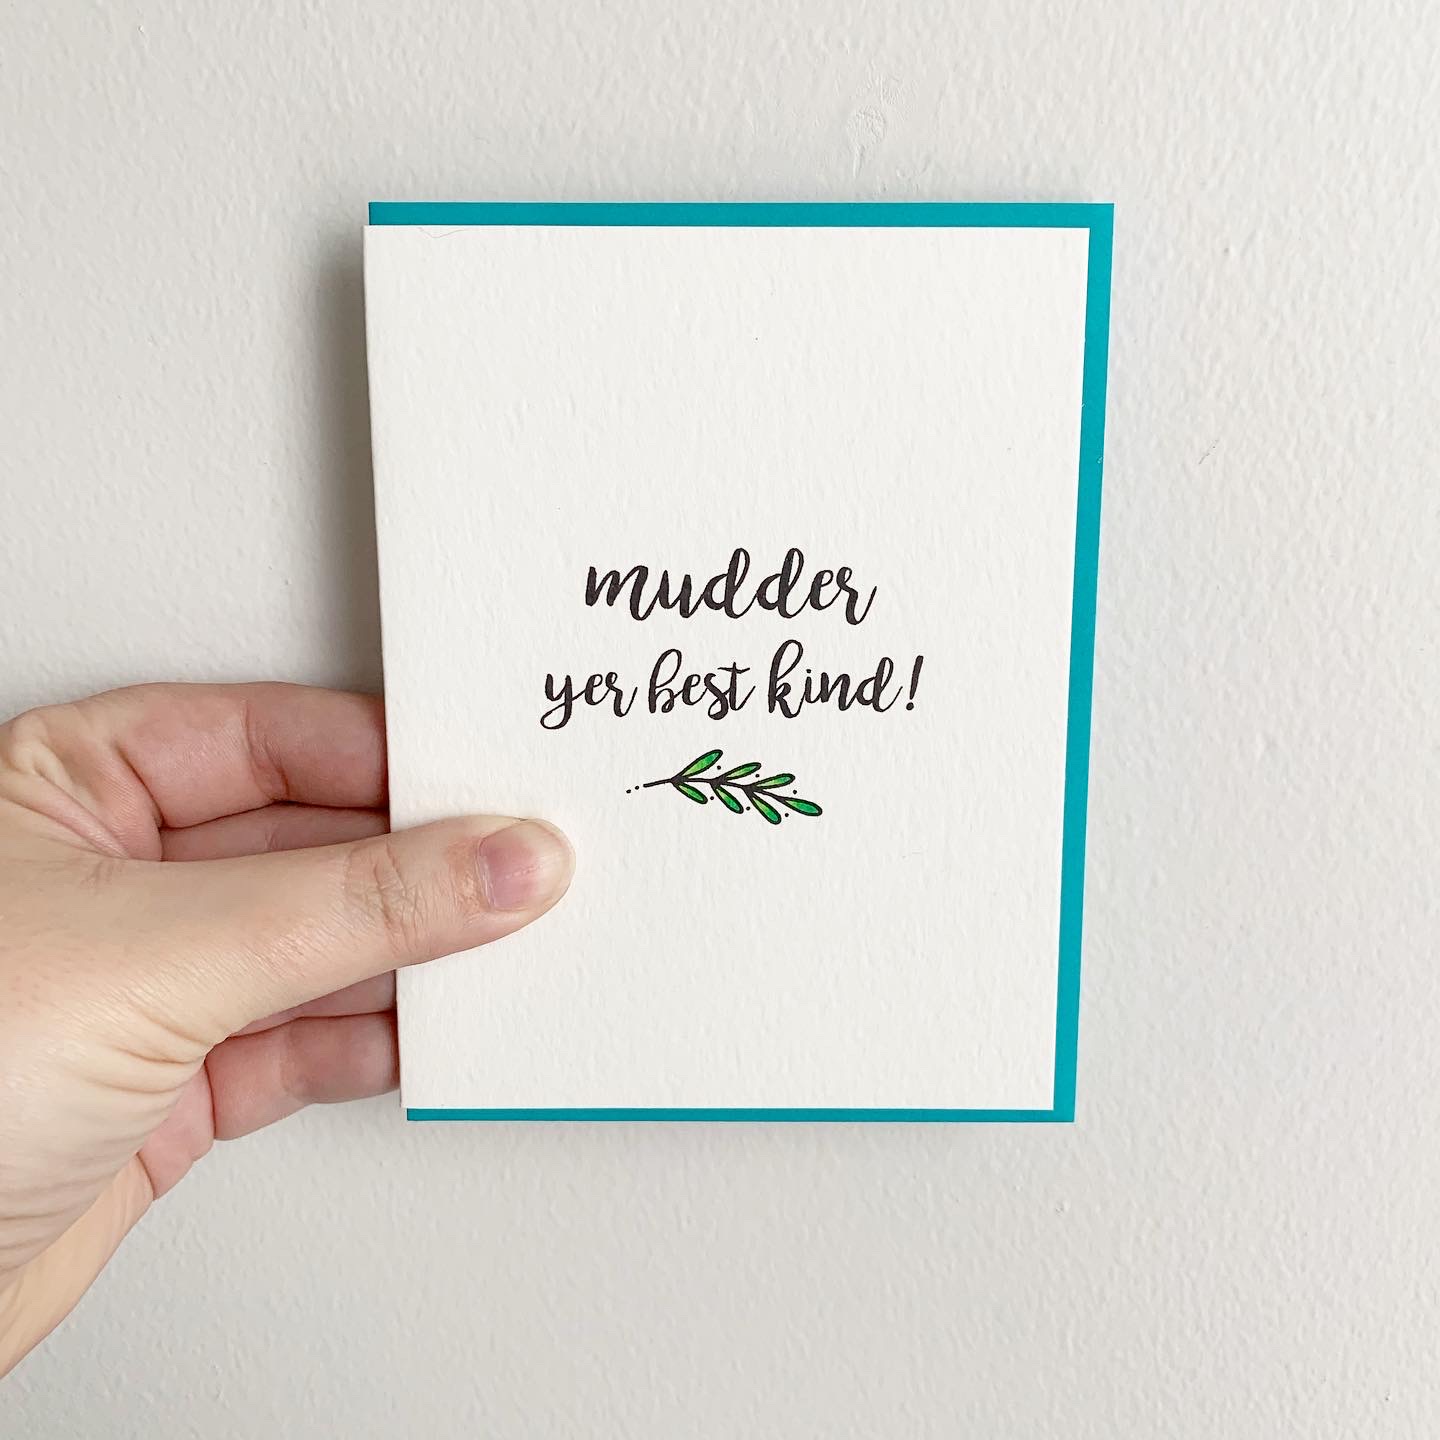 mudder
yer best kind!